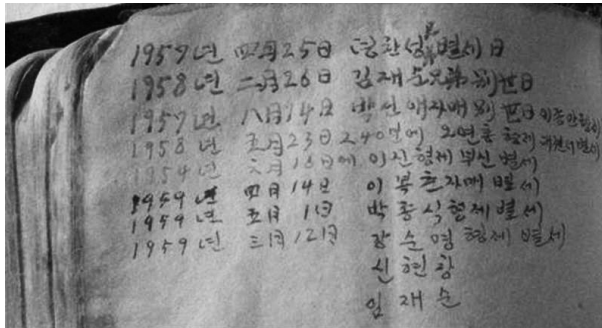 1957년 四月25日 명찬성 兄弟 별세日
1958년 二月26日 김재순 兄弟 別世日
1957년 八月14日 박선애자매 別世日
1958년 五月23日 2.40분에 오연홍 형제
1954년 六月18日에 이진형제 부친 별세
1959년 四月14日 이복춘자매 별세
1959년 五月1日 박종식형제 별세
1959년 三月12日 강순명 형제 별세
신현창
임재순